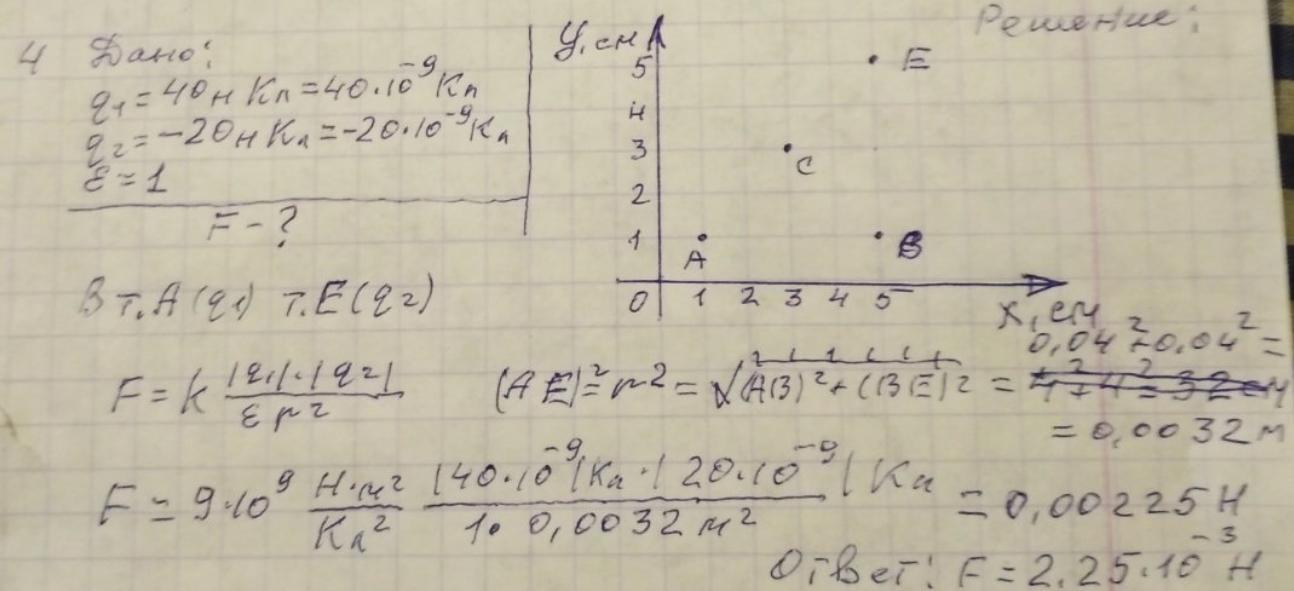 Решение:
4 Дано:
q₁ = 40 н Кл = 40·10⁻⁹ Кл
q₂ = -20 н Кл = -20·10⁻⁹ Кл
ε = 1
F - ?
У, см
5
4
3
2
1
0 1 2 3 4 5
X, см
E
C
A
B
В т. A (q₁) т. E (q₂)
F = k |q₁|·|q₂| / ε r²
(AE)² = r² = (AB)² + (BE)² = 0,04² + 0,04² =
= 0,0032 м
F = 9·10⁹ Н·м²/Кл² |40·10⁻⁹| Кл · |20·10⁻⁹| Кл / 1 · 0,0032 м² = 0,00225 Н
Ответ: F = 2.25·10⁻³ Н